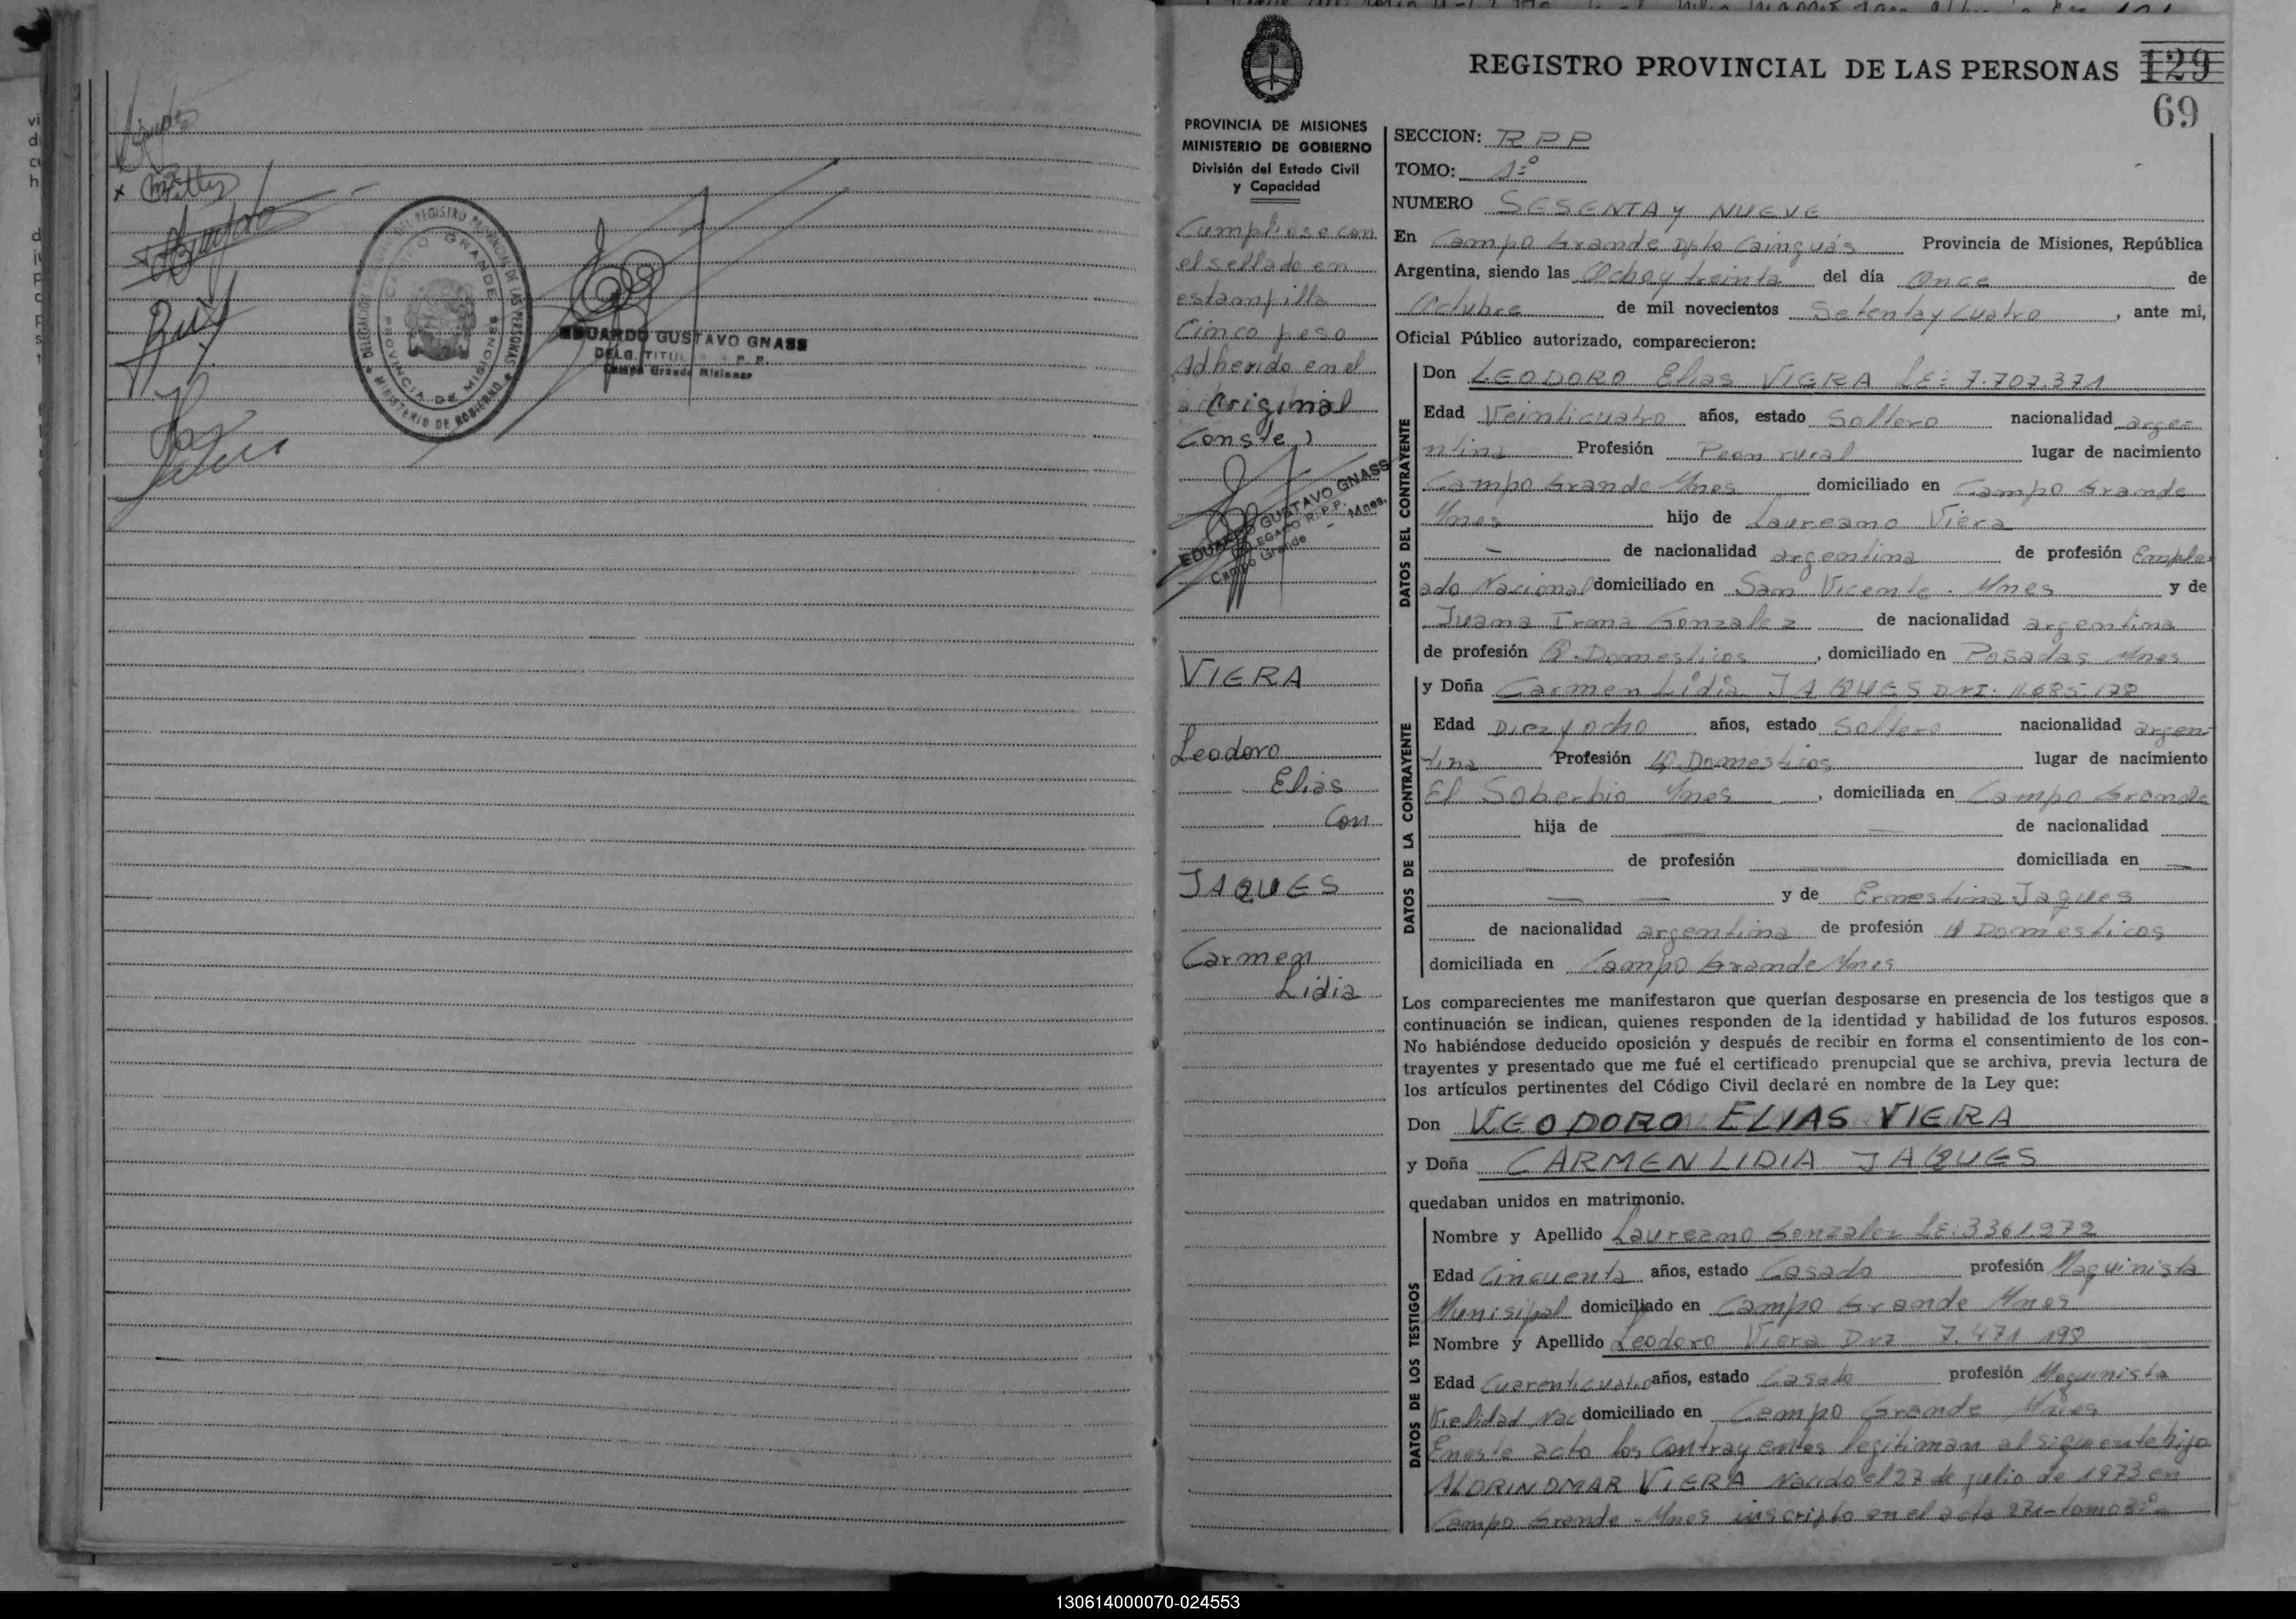 DELEGACION DEL REGISTRO PROVINCIAL DE LAS PERSONAS
MINISTERIO DE GOBIERNO
CAMPO GRANDE
PROVINCIA DE MISIONES
EDUARDO GUSTAVO GNASS
DELG. TITUL P. P.
Campo Grande Misiones
REGISTRO PROVINCIAL DE LAS PERSONAS 129
69
PROVINCIA DE MISIONES
MINISTERIO DE GOBIERNO
División del Estado Civil
y Capacidad
Cumpliose con
el sellado en
estampilla
Cinco peso
Adherido en el
Original
Conste)
EDUARDO GUSTAVO GNASS
DELEGADO R. P. P.
Campo Grande - Mnes.
VIERA
Leodoro
Elias
Con
JAQUES
Carmen
Lidia
SECCION: RPP
TOMO: 1º
NUMERO SESENTA y NUEVE
En Campo Grande Dpto Cainguás Provincia de Misiones, República
Argentina, siendo las Ocho y treinta del día Once de
Octubre de mil novecientos Setenta y Cuatro, ante mi,
Oficial Público autorizado, comparecieron:
DATOS DEL CONTRAYENTE
Don LEODORO Elias VIERA LE: 7.707.371
Edad Veinticuatro años, estado Soltero nacionalidad argen
ntina Profesión Peon rural lugar de nacimiento
Campo Grande Mnes domiciliado en Campo Grande
Mnes hijo de Laureano Viera
— de nacionalidad argentina de profesión Emple
ado Nacional domiciliado en San Vicente - Mnes y de
Juana Irma Gonzalez de nacionalidad argentina
de profesión Q. Domesticos, domiciliado en Posadas Mnes
DATOS DE LA CONTRAYENTE
y Doña Carmen Lidia JAQUES DNI. 11.685.178
Edad Diez y ocho años, estado Soltera nacionalidad argen-
tina Profesión Q Domesticos lugar de nacimiento
El Soberbio Mnes, domiciliada en Campo Grande
hija de — — de nacionalidad
de profesión — domiciliada en —
— — y de Ernestina Jaques
de nacionalidad argentina de profesión Q Domesticos
domiciliada en Campo Grande Mnes
Los comparecientes me manifestaron que querían desposarse en presencia de los testigos que a
continuación se indican, quienes responden de la identidad y habilidad de los futuros esposos.
No habiéndose deducido oposición y después de recibir en forma el consentimiento de los con-
trayentes y presentado que me fué el certificado prenupcial que se archiva, previa lectura de
los artículos pertinentes del Código Civil declaré en nombre de la Ley que:
Don LEODORO ELIAS VIERA
y Doña CARMEN LIDIA JAQUES
quedaban unidos en matrimonio.
DATOS DE LOS TESTIGOS
Nombre y Apellido Laureano Gonzalez LE: 3361.972
Edad Cincuenta años, estado Casado profesión Maquinista
Munisipal domiciliado en Campo Grande Mnes
Nombre y Apellido Leodoro Viera DNI 7.471 198
Edad Cuarenticuatro años, estado Casado profesión Maquinista
Vielidad Nac domiciliado en Campo Grande Mnes
En este acto los Contrayentes legitiman al siguiente hijo
ALDRIN OMAR VIERA Nacido el 27 de julio de 1973 en
Campo Grande - Mnes inscripto en el acta 271 - tomo 3º
130614000070-024553